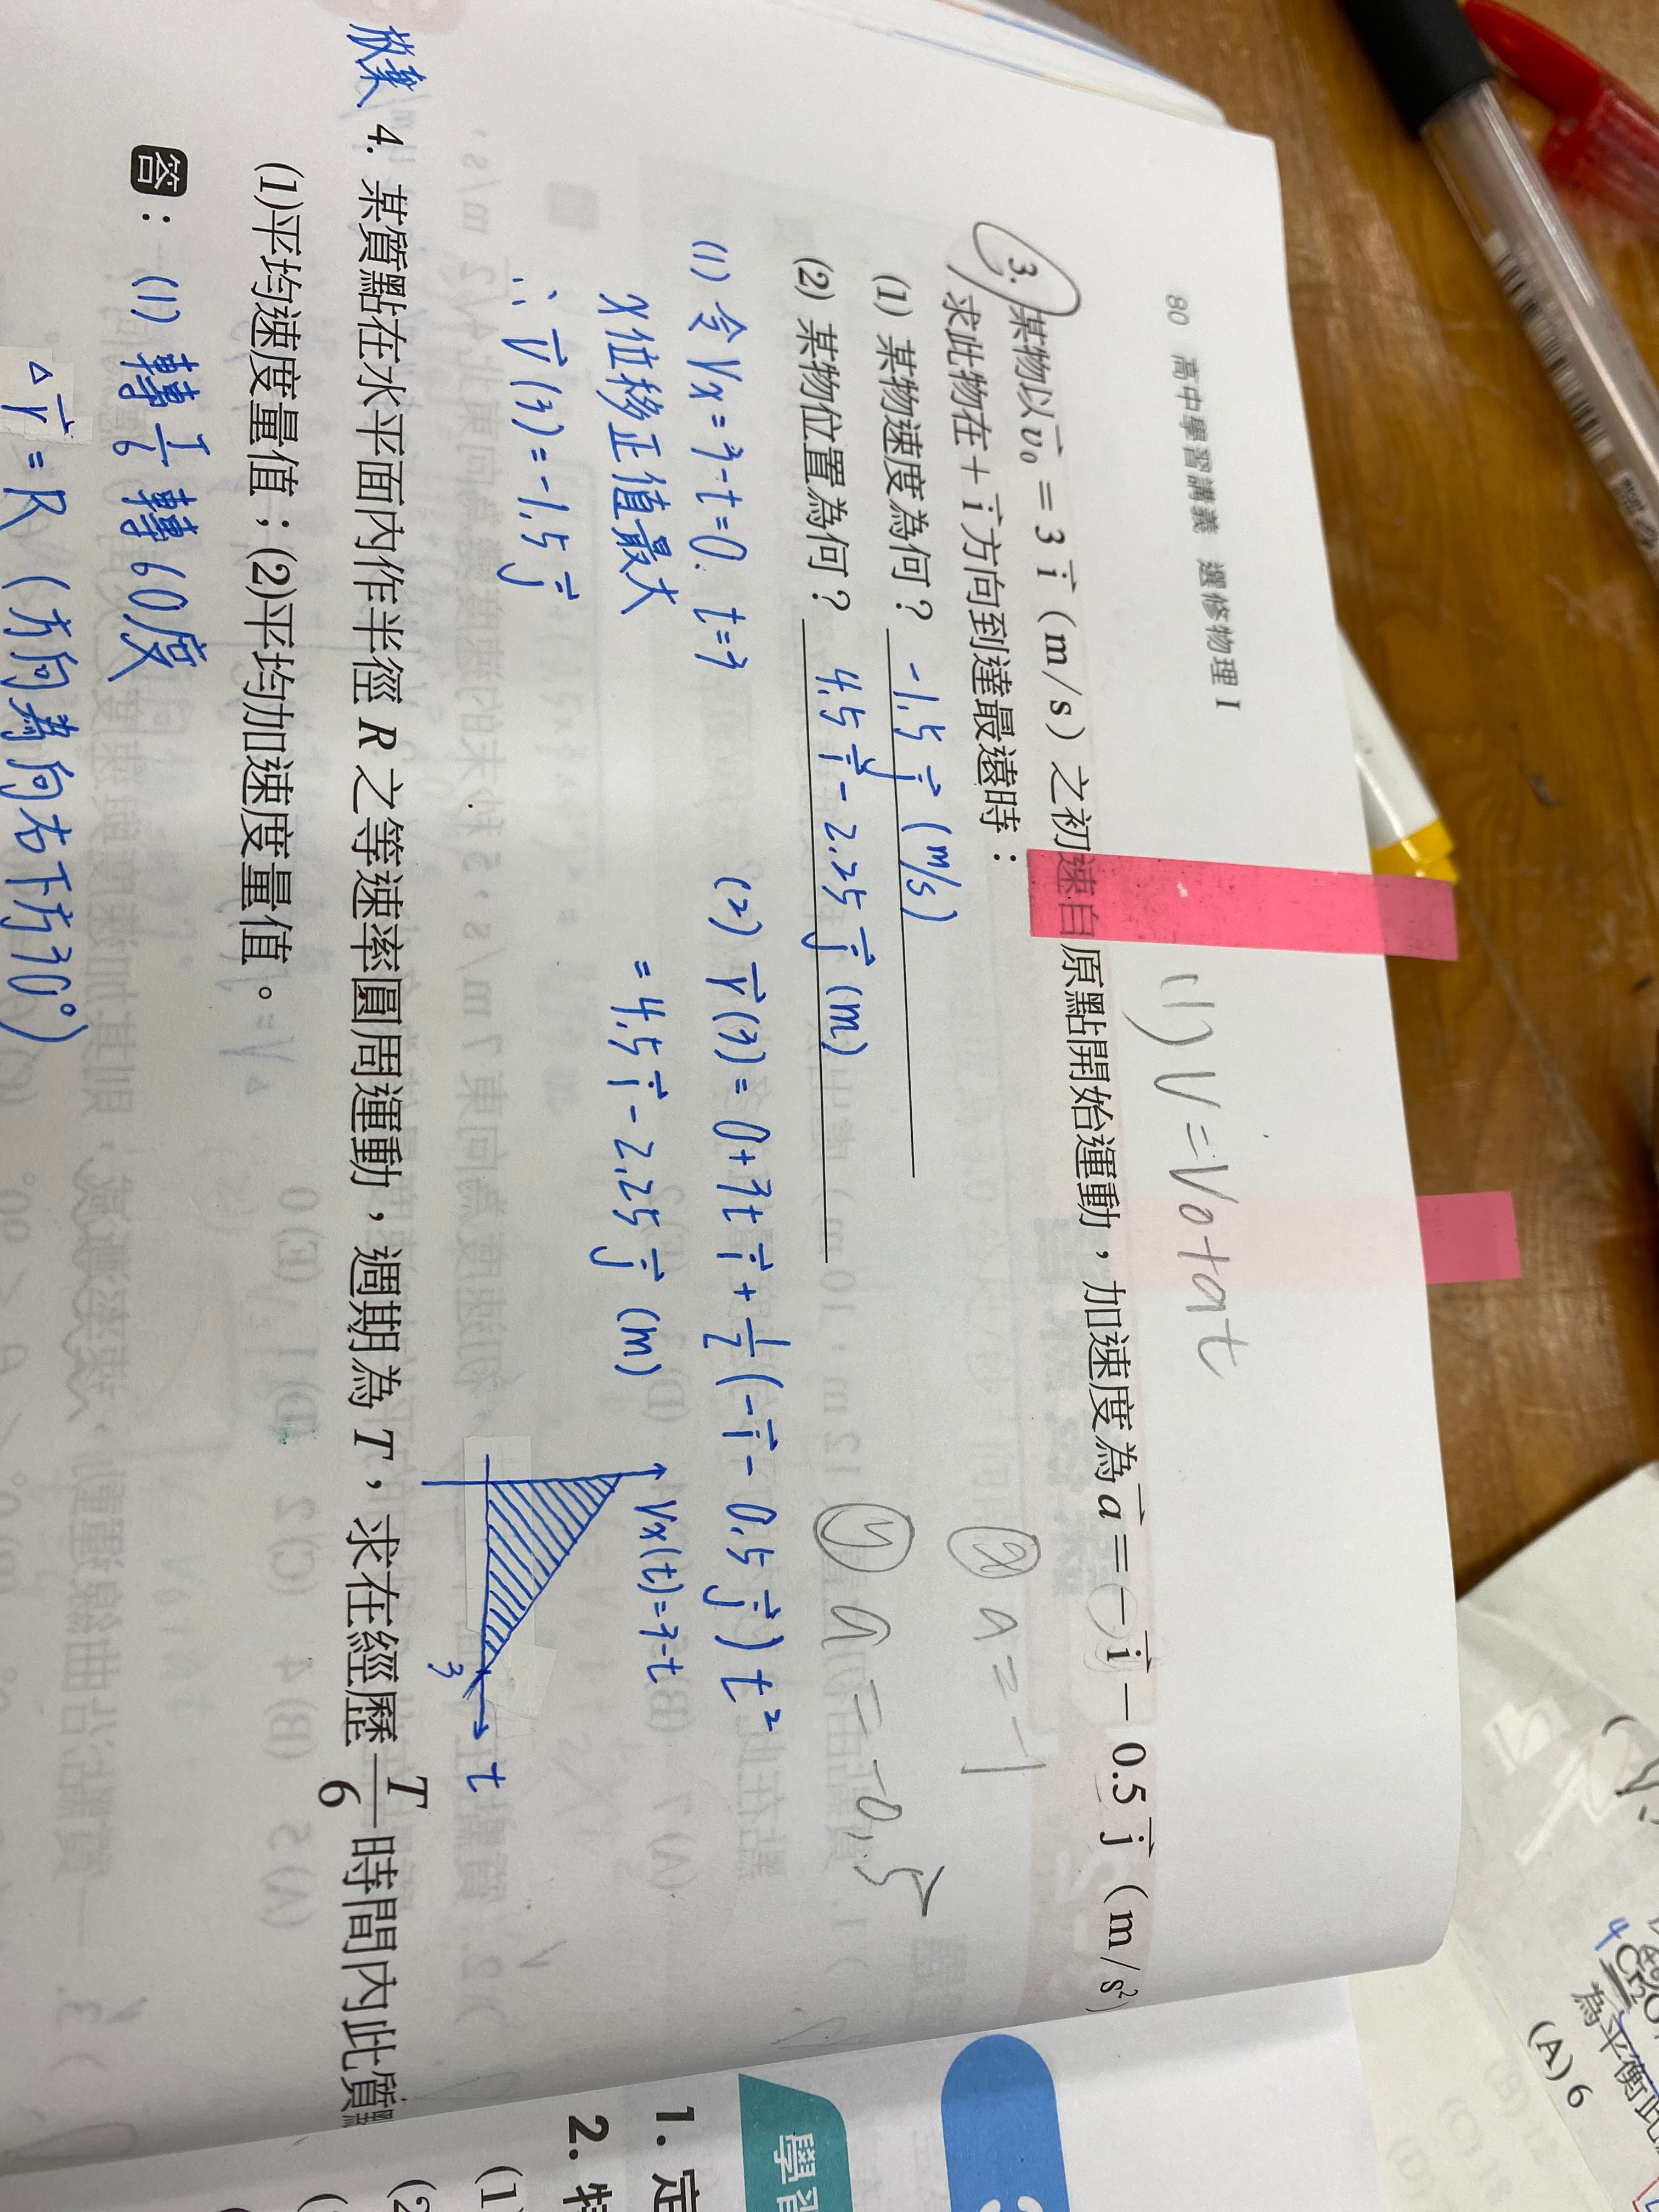 80 高中學習講義 選修物理 I
(1) V = V₀ + at
3. 某物以 v⃗₀ = 3 i⃗ (m/s) 之初速自原點開始運動，加速度為 a⃗ = − i⃗ − 0.5 j⃗ (m/s²)
求此物在 + i⃗ 方向到達最遠時：
(1) 某物速度為何？ -1.5 j⃗ (m/s)
x a = -1
(2) 某物位置為何？ 4.5 i⃗ - 2.25 j⃗ (m)
y a = -0.5
(1) 令 Vx = 3 - t = 0. t = 3
x位移正值最大
∴ V⃗ (3) = -1.5 j⃗
(2) r⃗ (3) = 0 + 3t i⃗ + 1/2 (- i⃗ - 0.5 j⃗) t²
= 4.5 i⃗ - 2.25 j⃗ (m)
Vx(t) = 3 - t
3
t
放棄 4. 某質點在水平面內作半徑 R 之等速率圓周運動，週期為 T，求在經歷 T/6 時間內此質點
(1)平均速度量值；(2)平均加速度量值。
答：(1) 轉 T/6 轉 60度
△r⃗ = R (方向為向右下方30°)
學習
1. 定
2. 特
(1)
(2
為平衡
(A) 6